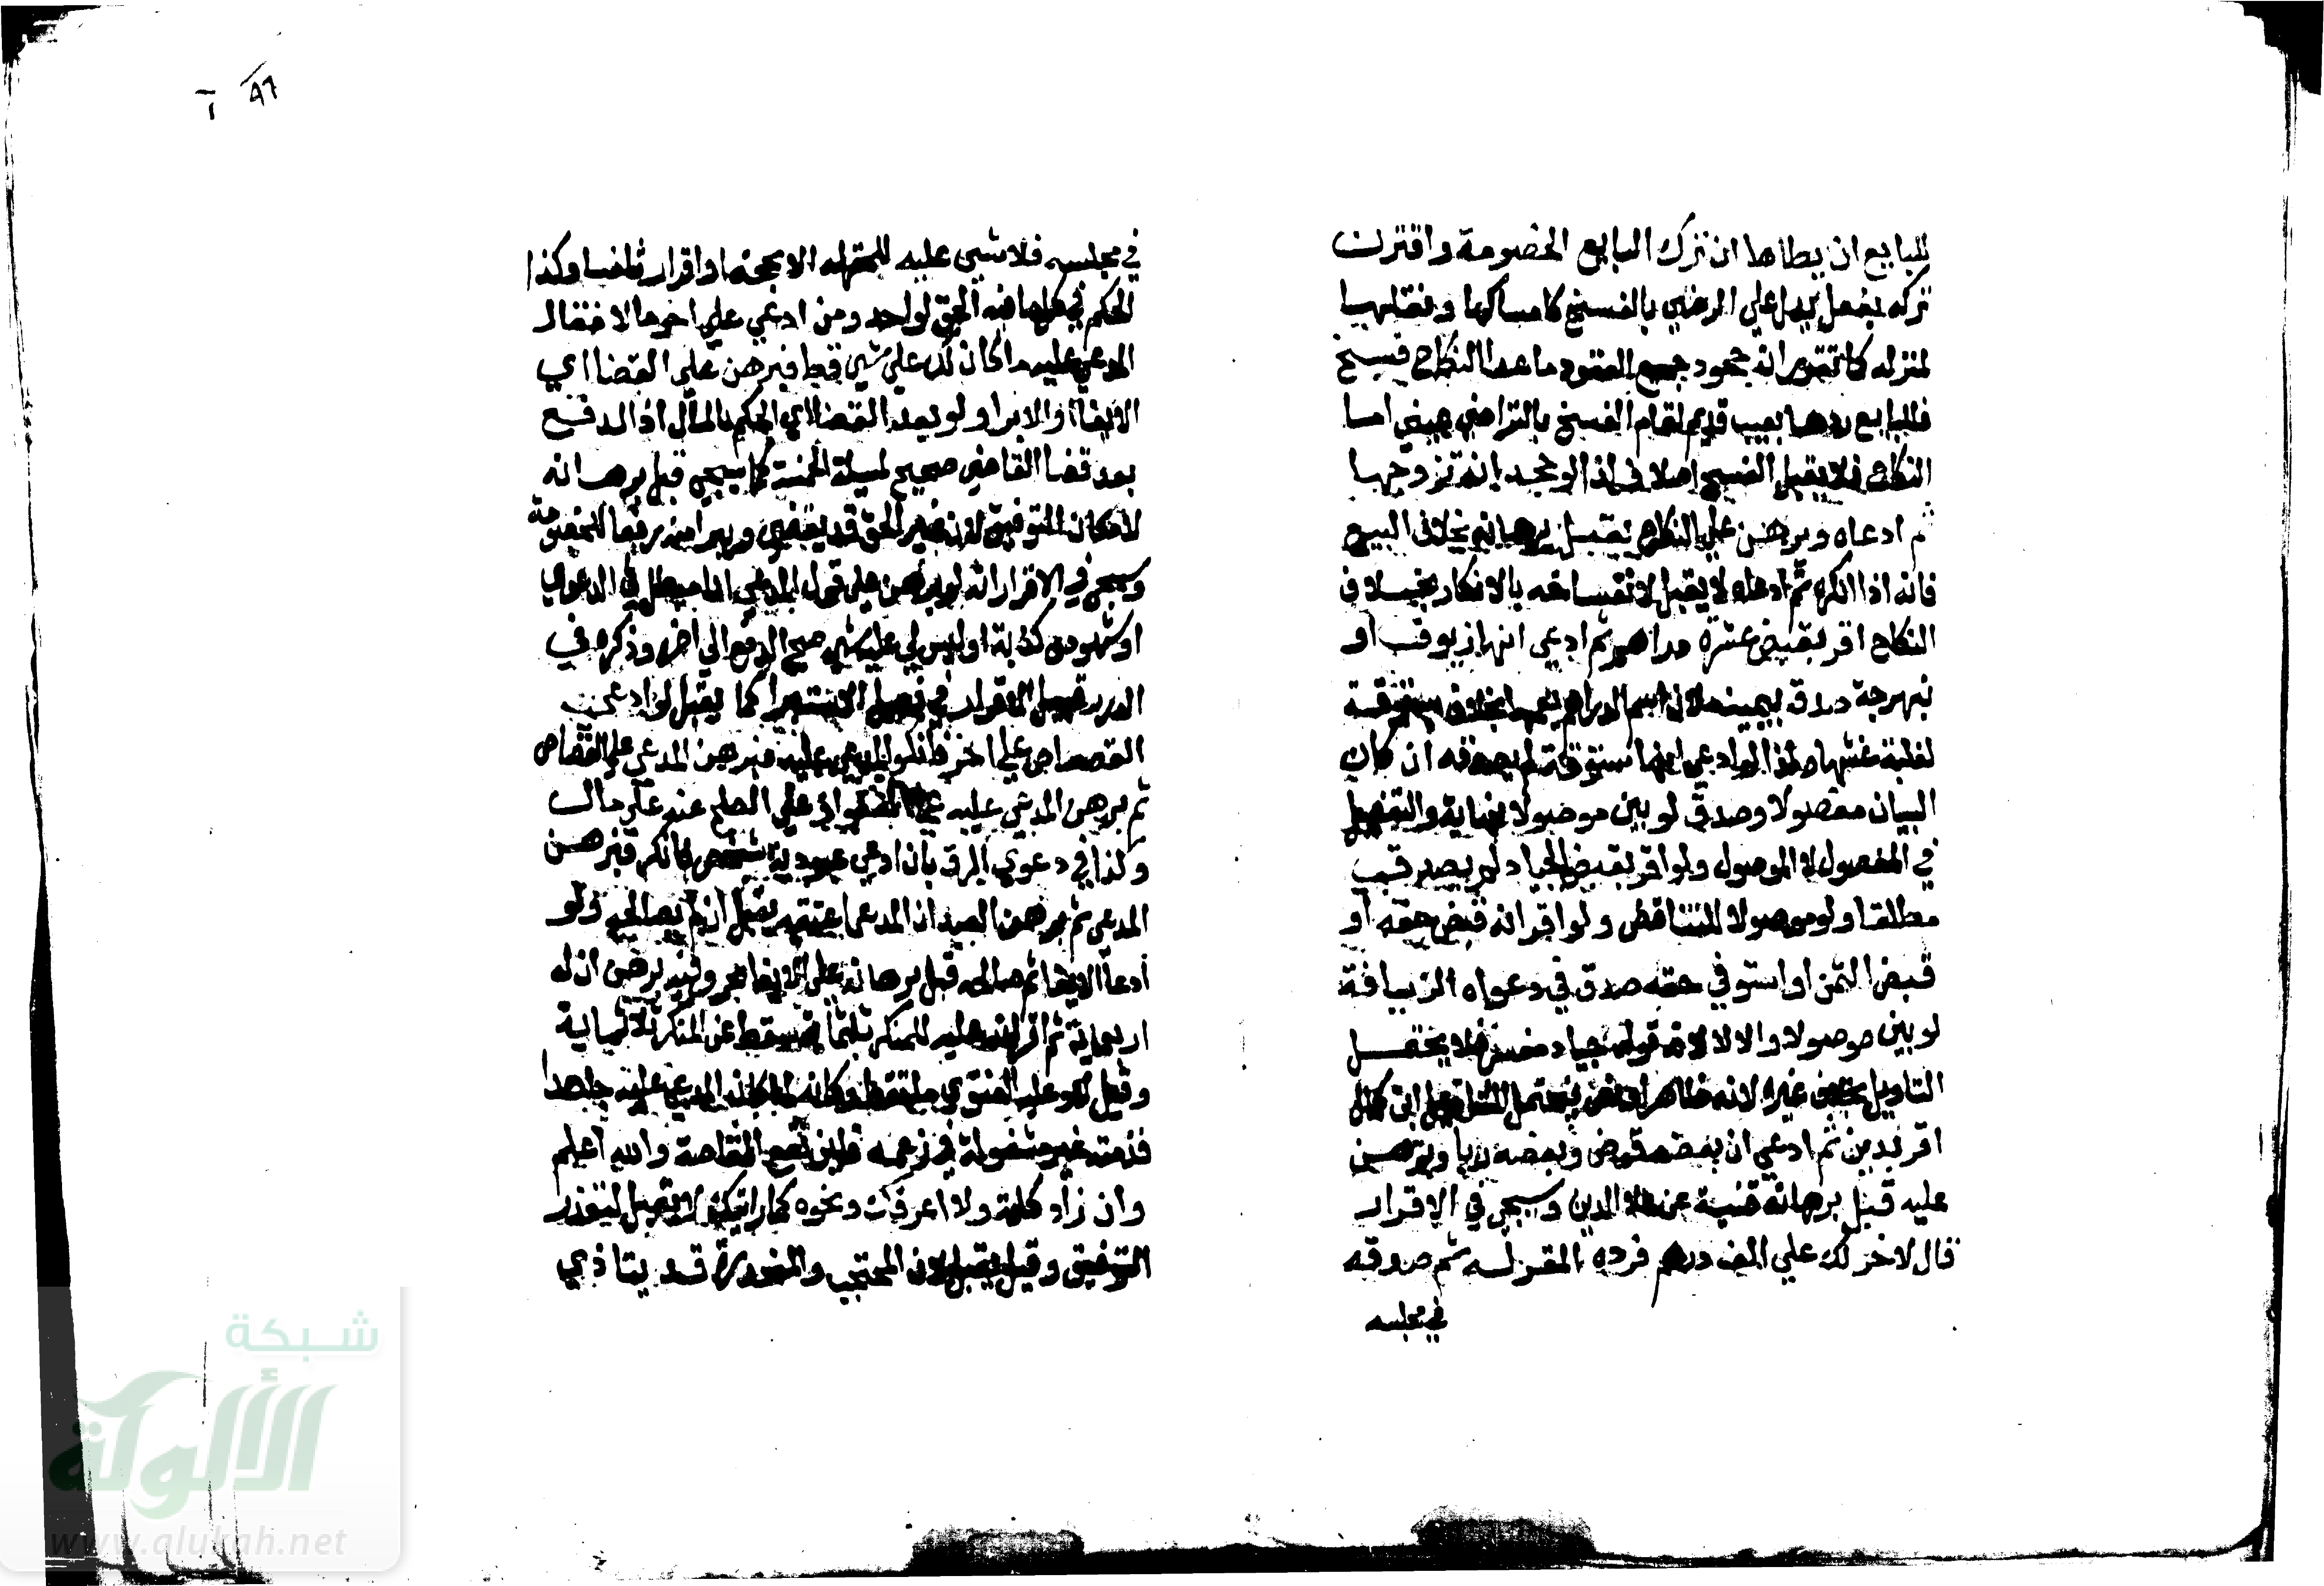 للبايع ان يطاها ان ترك البايع الخصومة واقترن
تركه بفعل يدل علي الرضي بالفسخ كامساكها ونقلها
لمنزله كا تقرر ان جحود جميع العقود ما عدا النكاح فسخ
فللبايع ردها بعيب قديم لتمام الفسخ بالتراضي عيني اما
النكاح فلا يقبل الفسخ اصلا فلذا لو جحد انه تزوجها
ثم ادعاه وبرهن علي النكاح يقبل برهانه بخلاف البيع
فانه اذا انكره ثم ادعاه لا يقبل لانفساخه بالانكار بخلاف
النكاح اقر بقبض عشرة دراهم ثم ادعي انها زيوف او
نبهرجة صدق بيمينه لان اسم الدراهم يعمها بخلاف ستوقة
لغلبة غشها ولذا لو ادعي انها ستوقة لم يصدقه ان كان
البيان مفصولا وصدق لو بين موصولا نهاية والتفصيل
في المفصول لا الموصول ولو اقر بقبض الجياد لم يصدق
مطلقا ولو موصولا للتناقض ولو اقر انه قبض حقه او
قبض الثمن او استوفي حقه صدق في دعواه الزيافة
لو بين موصولا والا لا لان قوله جياد مفسر فلا يحتمل
التاويل بخلاف غيره لانه ظاهر او نص فيحتمل التاويل ابن كمال
اقر بدين ثم ادعي ان بعضه قرض وبعضه ربا وبرهن
عليه قبل برهانه قنية عن علا الدين وسيجي في الاقرار
قال لاخر لك علي الف درهم فرده المقر له ثم صدقه
في مجلسه
في مجلسه فلا شي عليه للمقر له الا بحجة او اقرار ثانيا وكذا
الحكم في كلما فيه الحق لواحد ومن ادعي علي اخر مالا فقال
المدعي عليه ما كان لك علي شي قط فبرهن علي القضا اي
الايفا او الابرا ولو بعد القضا اي الحكم بالمال اذ الدفع
بعد قضا القاضي صحيح لمسيلة المخمسة كما سيجي قبل برهانه
لامكان التوفيق لان غير الحق قد يقضي ويبرا منه رفعا للخصومة
وسيجي في الاقرار انه لو برهن علي قول المدعي انا مبطل في الدعوي
او شهودي كذبة او ليس لي عليه شي صح الدفع الي اخره وذكره في
الدرر قبيل الاقرار في فصل الاستبرا كما يقبل لو ادعي
القصاص علي اخر فانكر المدعي عليه فبرهن المدعي علي القصاص
ثم برهن المدعي عليه علي العفو او علي الصلح عنه علي مال
وكذا في دعوي الرق بان ادعي عبودية شخص فانكر فبرهن
المدعي ثم برهن العبد ان المدعي اعتقه يقبل ان لم يصالحه ولو
ادعا الايفا ثم صالحه قبل برهانه علي الايفا بحر وفيه برهن ان له
اربعماية ثم اقر ان عليه للمنكر ثلثماية سقط عن المنكر ثلاثماية
وقيل لا وعليه الفتوي ملتقط وكانه لما كان المدعي عليه جاحدا
فذمته غير مشغولة في زعمه فاين تقع المقاصة والله اعلم
وان زاد كلمة ولا اعرفك ونحوه كما رايتك لا يقبل لتعذر
التوفيق وقيل يقبل لان المحتجب والمخدرة قد يتاذي
٩٦
شبكة
الألوكة
www.alukah.net